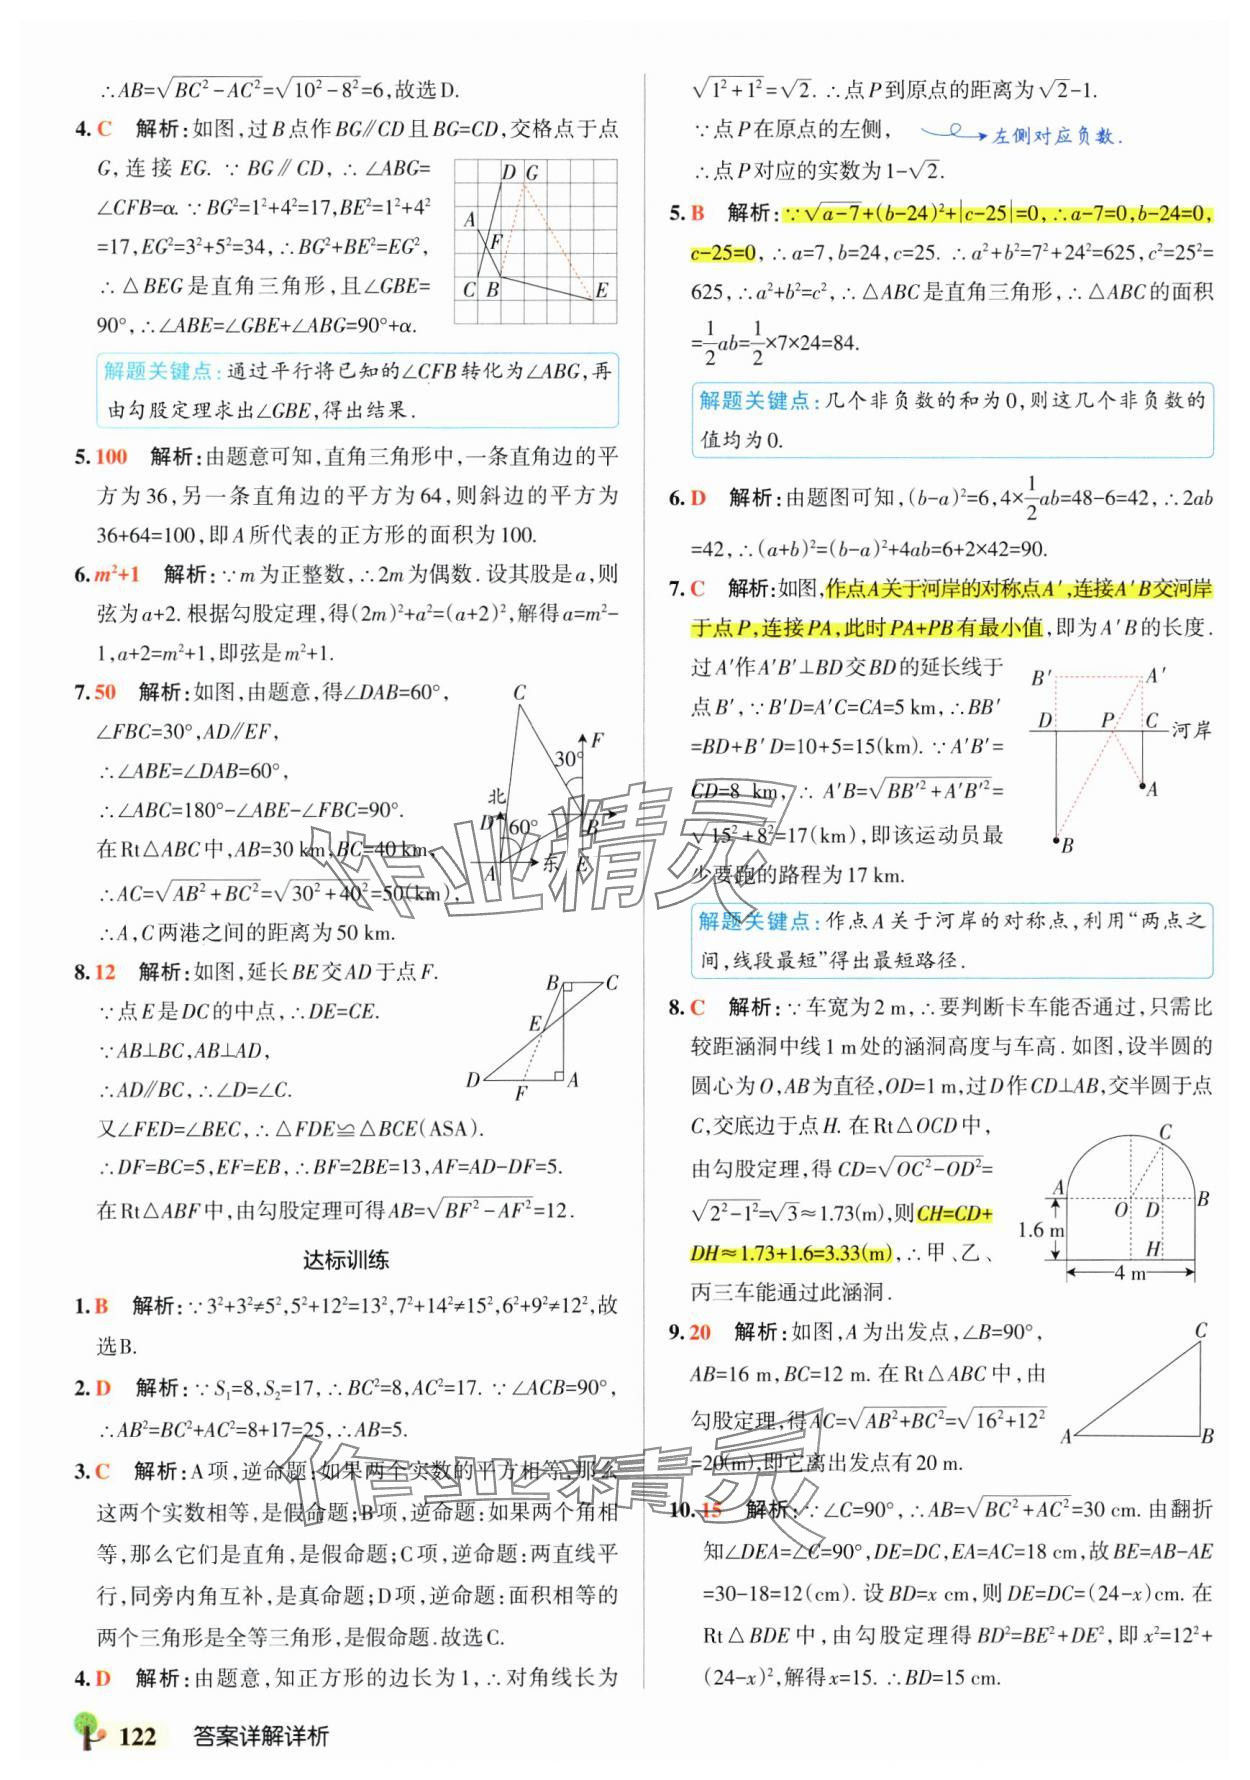 ∴AB=√(BC²-AC²)=√(10²-8²)=6,故选D.
4. C 解析:如图,过B点作BG∥CD且BG=CD,交格点于点
G,连接EG. ∵BG∥CD,∴∠ABG=
∠CFB=α. ∵BG²=1²+4²=17,BE²=1²+4²
=17,EG²=3²+5²=34,∴BG²+BE²=EG²,
∴△BEG是直角三角形,且∠GBE=
90°,∴∠ABE=∠GBE+∠ABG=90°+α.
D G
A
F
C B E
解题关键点:通过平行将已知的∠CFB转化为∠ABG,再
由勾股定理求出∠GBE,得出结果.
5. 100 解析:由题意可知,直角三角形中,一条直角边的平
方为36,另一条直角边的平方为64,则斜边的平方为
36+64=100,即A所代表的正方形的面积为100.
6. m²+1 解析:∵m为正整数,∴2m为偶数.设其股是a,则
弦为a+2.根据勾股定理,得(2m)²+a²=(a+2)²,解得a=m²-
1,a+2=m²+1,即弦是m²+1.
7. 50 解析:如图,由题意,得∠DAB=60°,
∠FBC=30°,AD∥EF,
∴∠ABE=∠DAB=60°,
∴∠ABC=180°-∠ABE-∠FBC=90°.
在Rt△ABC中,AB=30 km,BC=40 km,
∴AC=√(AB²+BC²)=√(30²+40²)=50(km),
∴A,C两港之间的距离为50 km.
C
F
30°
北
D 60° B
A 东 E
8. 12 解析:如图,延长BE交AD于点F.
∵点E是DC的中点,∴DE=CE.
∵AB⊥BC,AB⊥AD,
∴AD∥BC,∴∠D=∠C.
又∠FED=∠BEC,∴△FDE≌△BCE(ASA).
∴DF=BC=5,EF=EB,∴BF=2BE=13,AF=AD-DF=5.
在Rt△ABF中,由勾股定理可得AB=√(BF²-AF²)=12.
B C
E
D F A
达标训练
1. B 解析:∵3²+3²≠5²,5²+12²=13²,7²+14²≠15²,6²+9²≠12²,故
选B.
2. D 解析:∵S₁=8,S₂=17,∴BC²=8,AC²=17. ∵∠ACB=90°,
∴AB²=BC²+AC²=8+17=25,∴AB=5.
3. C 解析:A项,逆命题:如果两个实数的平方相等,那么
这两个实数相等,是假命题;B项,逆命题:如果两个角相
等,那么它们是直角,是假命题;C项,逆命题:两直线平
行,同旁内角互补,是真命题;D项,逆命题:面积相等的
两个三角形是全等三角形,是假命题.故选C.
4. D 解析:由题意,知正方形的边长为1,∴对角线长为
√(1²+1²)=√2. ∴点P到原点的距离为√2-1.
∵点P在原点的左侧, 左侧对应负数.
∴点P对应的实数为1-√2.
5. B 解析:∵√(a-7)+(b-24)²+|c-25|=0,∴a-7=0,b-24=0,
c-25=0,∴a=7,b=24,c=25. ∴a²+b²=7²+24²=625,c²=25²=
625,∴a²+b²=c²,∴△ABC是直角三角形,∴△ABC的面积
=1/2ab=1/2×7×24=84.
解题关键点:几个非负数的和为0,则这几个非负数的
值均为0.
6. D 解析:由题图可知,(b-a)²=6,4×1/2ab=48-6=42,∴2ab
=42,∴(a+b)²=(b-a)²+4ab=6+2×42=90.
7. C 解析:如图,作点A关于河岸的对称点A′,连接A′B交河岸
于点P,连接PA,此时PA+PB有最小值,即为A′B的长度.
过A′作A′B′⊥BD交BD的延长线于
点B′,∵B′D=A′C=CA=5 km,∴BB′
=BD+B′D=10+5=15(km). ∵A′B′=
CD=8 km,∴A′B=√(BB′²+A′B′²)=
√(15²+8²)=17(km),即该运动员最
少要跑的路程为17 km.
B′ A′
D P C 河岸
A
B
解题关键点:作点A关于河岸的对称点,利用“两点之
间,线段最短”得出最短路径.
8. C 解析:∵车宽为2 m,∴要判断卡车能否通过,只需比
较距涵洞中线1 m处的涵洞高度与车高.如图,设半圆的
圆心为O,AB为直径,OD=1 m,过D作CD⊥AB,交半圆于点
C,交底边于点H.在Rt△OCD中,
由勾股定理,得CD=√(OC²-OD²)=
√(2²-1²)=√3≈1.73(m),则CH=CD+
DH≈1.73+1.6=3.33(m),∴甲、乙、
丙三车能通过此涵洞.
C
A O D B
1.6 m H
4 m
9. 20 解析:如图,A为出发点,∠B=90°,
AB=16 m,BC=12 m.在Rt△ABC中,由
勾股定理,得AC=√(AB²+BC²)=√(16²+12²)
=20(m),即它离出发点有20 m.
C
A B
10. 15 解析:∵∠C=90°,∴AB=√(BC²+AC²)=30 cm.由翻折
知∠DEA=∠C=90°,DE=DC,EA=AC=18 cm,故BE=AB-AE
=30-18=12(cm).设BD=x cm,则DE=DC=(24-x)cm.在
Rt△BDE中,由勾股定理得BD²=BE²+DE²,即x²=12²+
(24-x)²,解得x=15. ∴BD=15 cm.
122 答案详解详析
作业精灵
作业精灵